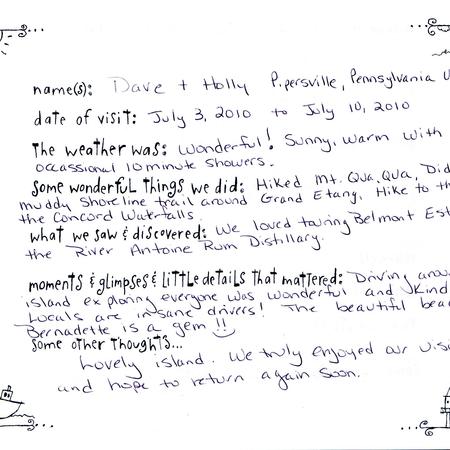 name(s): Dave + Holly Pipersville, Pennsylvania U
date of visit: July 3, 2010 to July 10, 2010
The weather was: Wonderful! Sunny, warm with
occassional 10 minute showers.
Some wonderful things we did: Hiked Mt. Qua Qua, Did
muddy Shoreline trail around Grand Etang, Hike to th
the Concord Waterfalls.
what we saw & discovered: We loved touring Belmont Est
the River Antoine Rum Distillary.
moments & glimpses & little details that mattered: Driving arou
island exploring everyone was wonderful and kind
Locals are insane drivers! The beautiful bea
Bernadette is a gem!!
Some other thoughts...
Lovely island. We truly enjoyed our visi
and hope to return again soon.